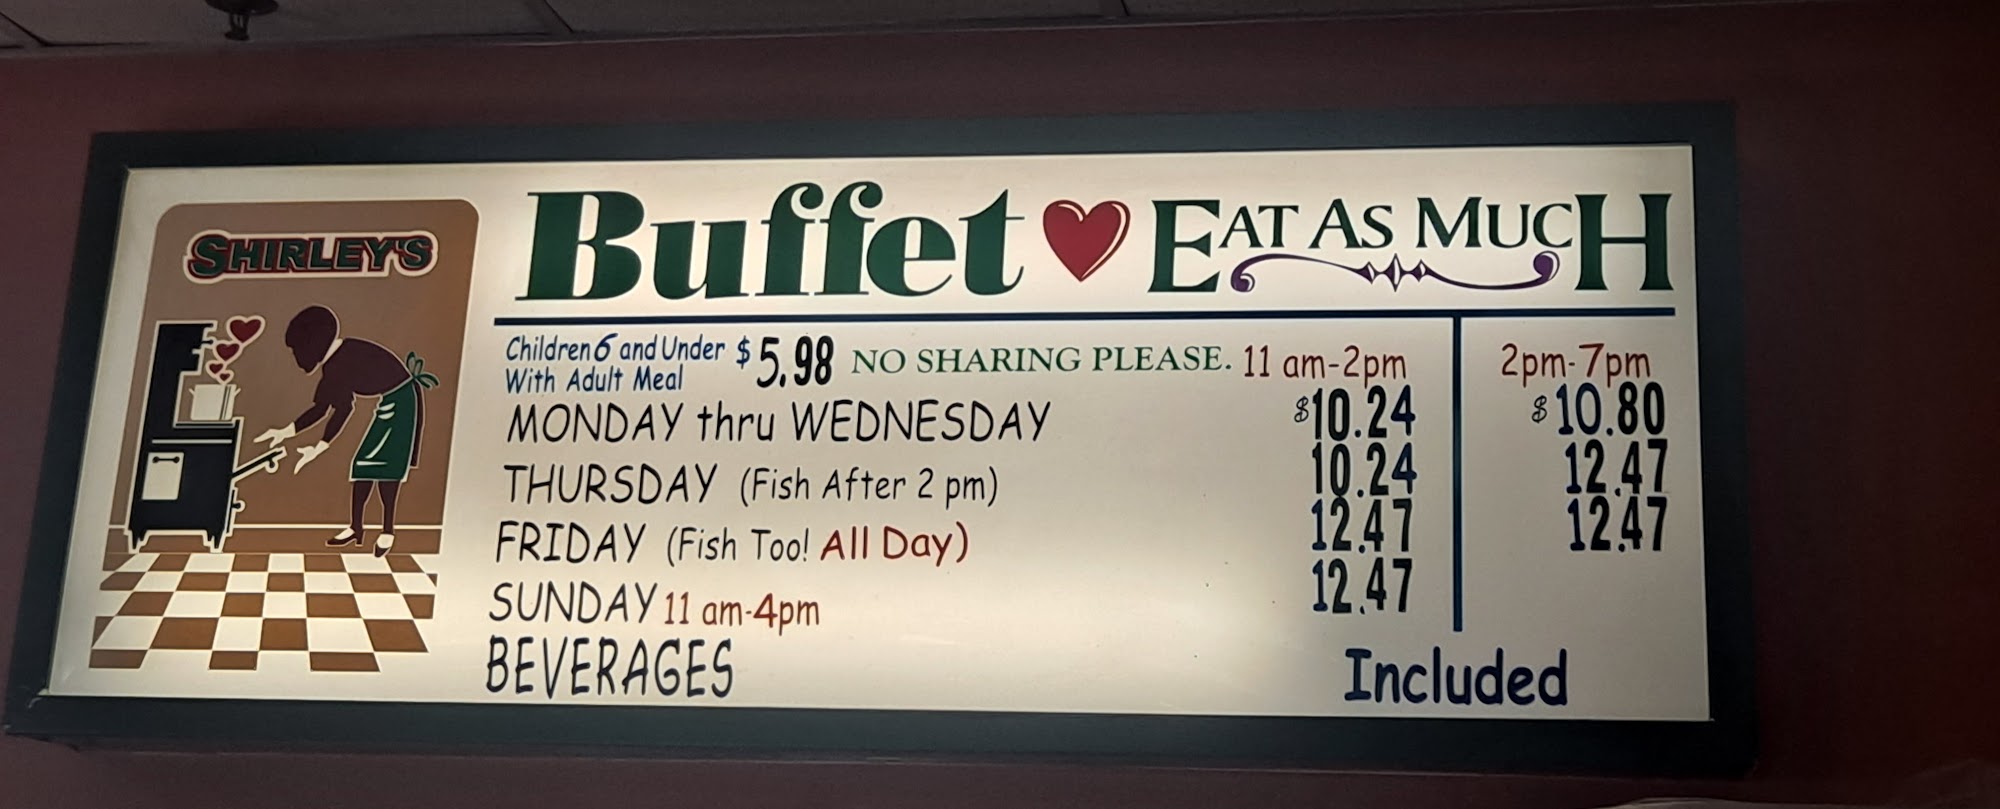 SHIRLEY'S
Buffet EAT AS MUCH
Children 6 and Under $5.98 NO SHARING PLEASE. 11 am-2pm 2pm-7pm
With Adult Meal
MONDAY thru WEDNESDAY $10.24 $10.80
THURSDAY (Fish After 2 pm) 10.24 12.47
FRIDAY (Fish Too! All Day) 12.47 12.47
SUNDAY 11 am-4pm 12.47
BEVERAGES Included